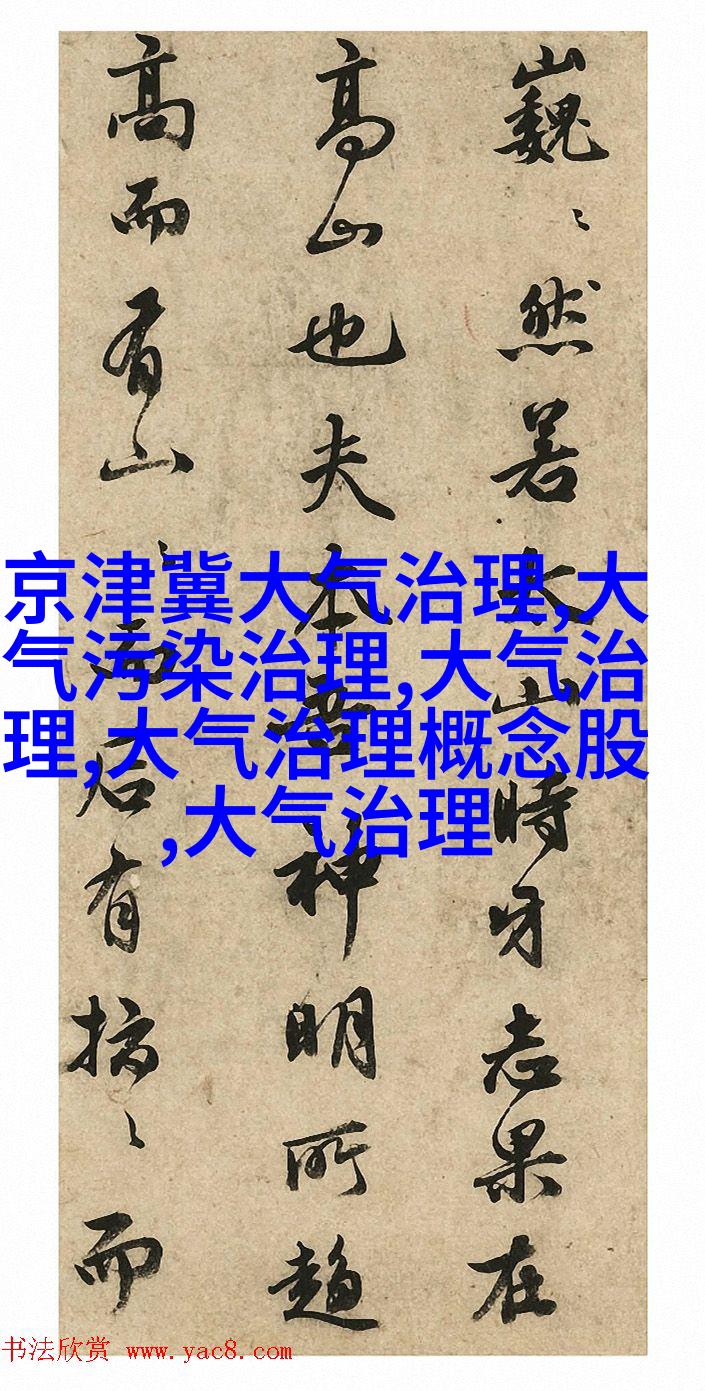 巍〻然若太山時牙志果在
高山也夫本神明所趨
高而有山〻而后有搞〻而
京津冀大气治理,大
气污染治理,大气治
理,大气治理概念股
,大气治理
书法欣赏 www.yac8.com